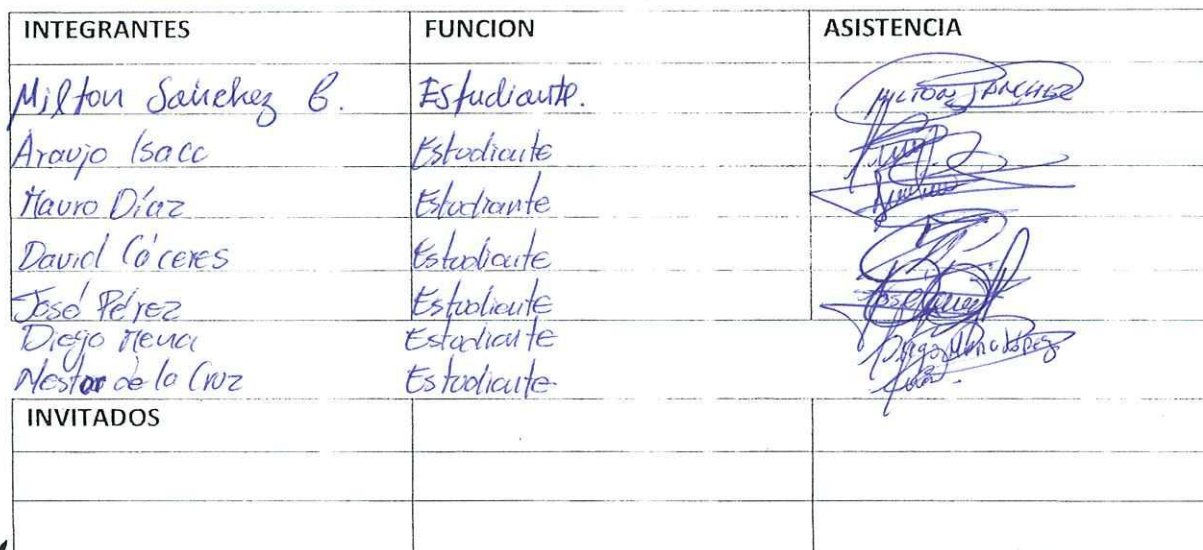 INTEGRANTES FUNCION ASISTENCIA
Milton Sánchez B. Estudiante. MILTON SANCHEZ
Araujo Isacc Estudiante
Mauro Díaz Estudiante
David Cáceres Estudiante
José Pérez Estudiante
Diego Mena Estudiante Diego Mena López
Nestor de la Cruz Estudiante
INVITADOS